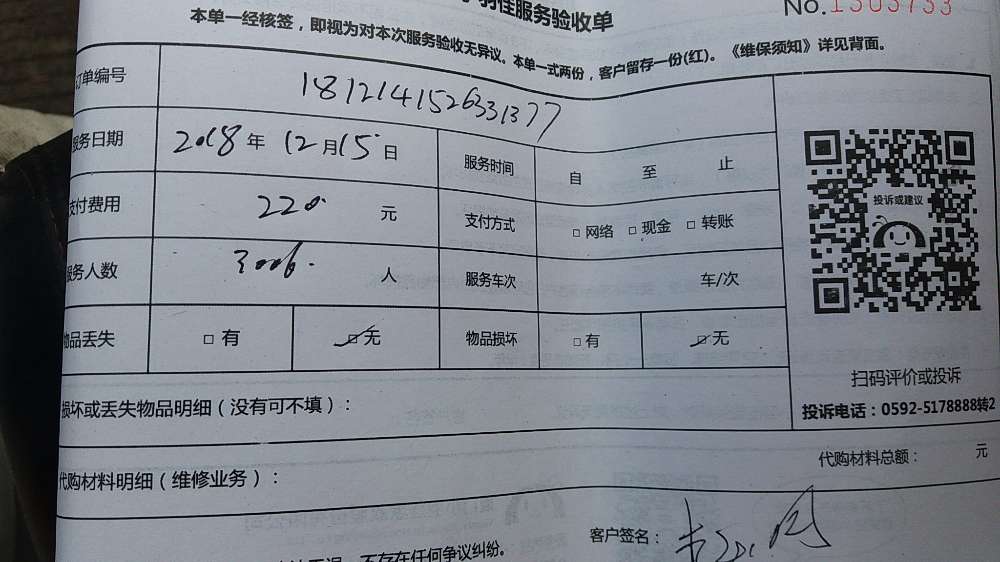 居住服务验收单
No.1303733
本单一经核签，即视为对本次服务验收无异议。本单一式两份，客户留存一份(红)。《维保须知》详见背面。
订单编号 1812141526331377
服务日期 2018年 12月15日 服务时间 自 至 止
支付费用 220. 元 支付方式 □ 网络 □ 现金 □ 转账
服务人数 3006. 人 服务车次 车/次
物品丢失 □ 有 ☑ 无 物品损坏 □ 有 ☑ 无
投诉或建议
扫码评价或投诉
投诉电话：0592-5178888转2
损坏或丢失物品明细（没有可不填）：
代购材料明细（维修业务）： 代购材料总额： 元
客户签名：
不存在任何争议纠纷。